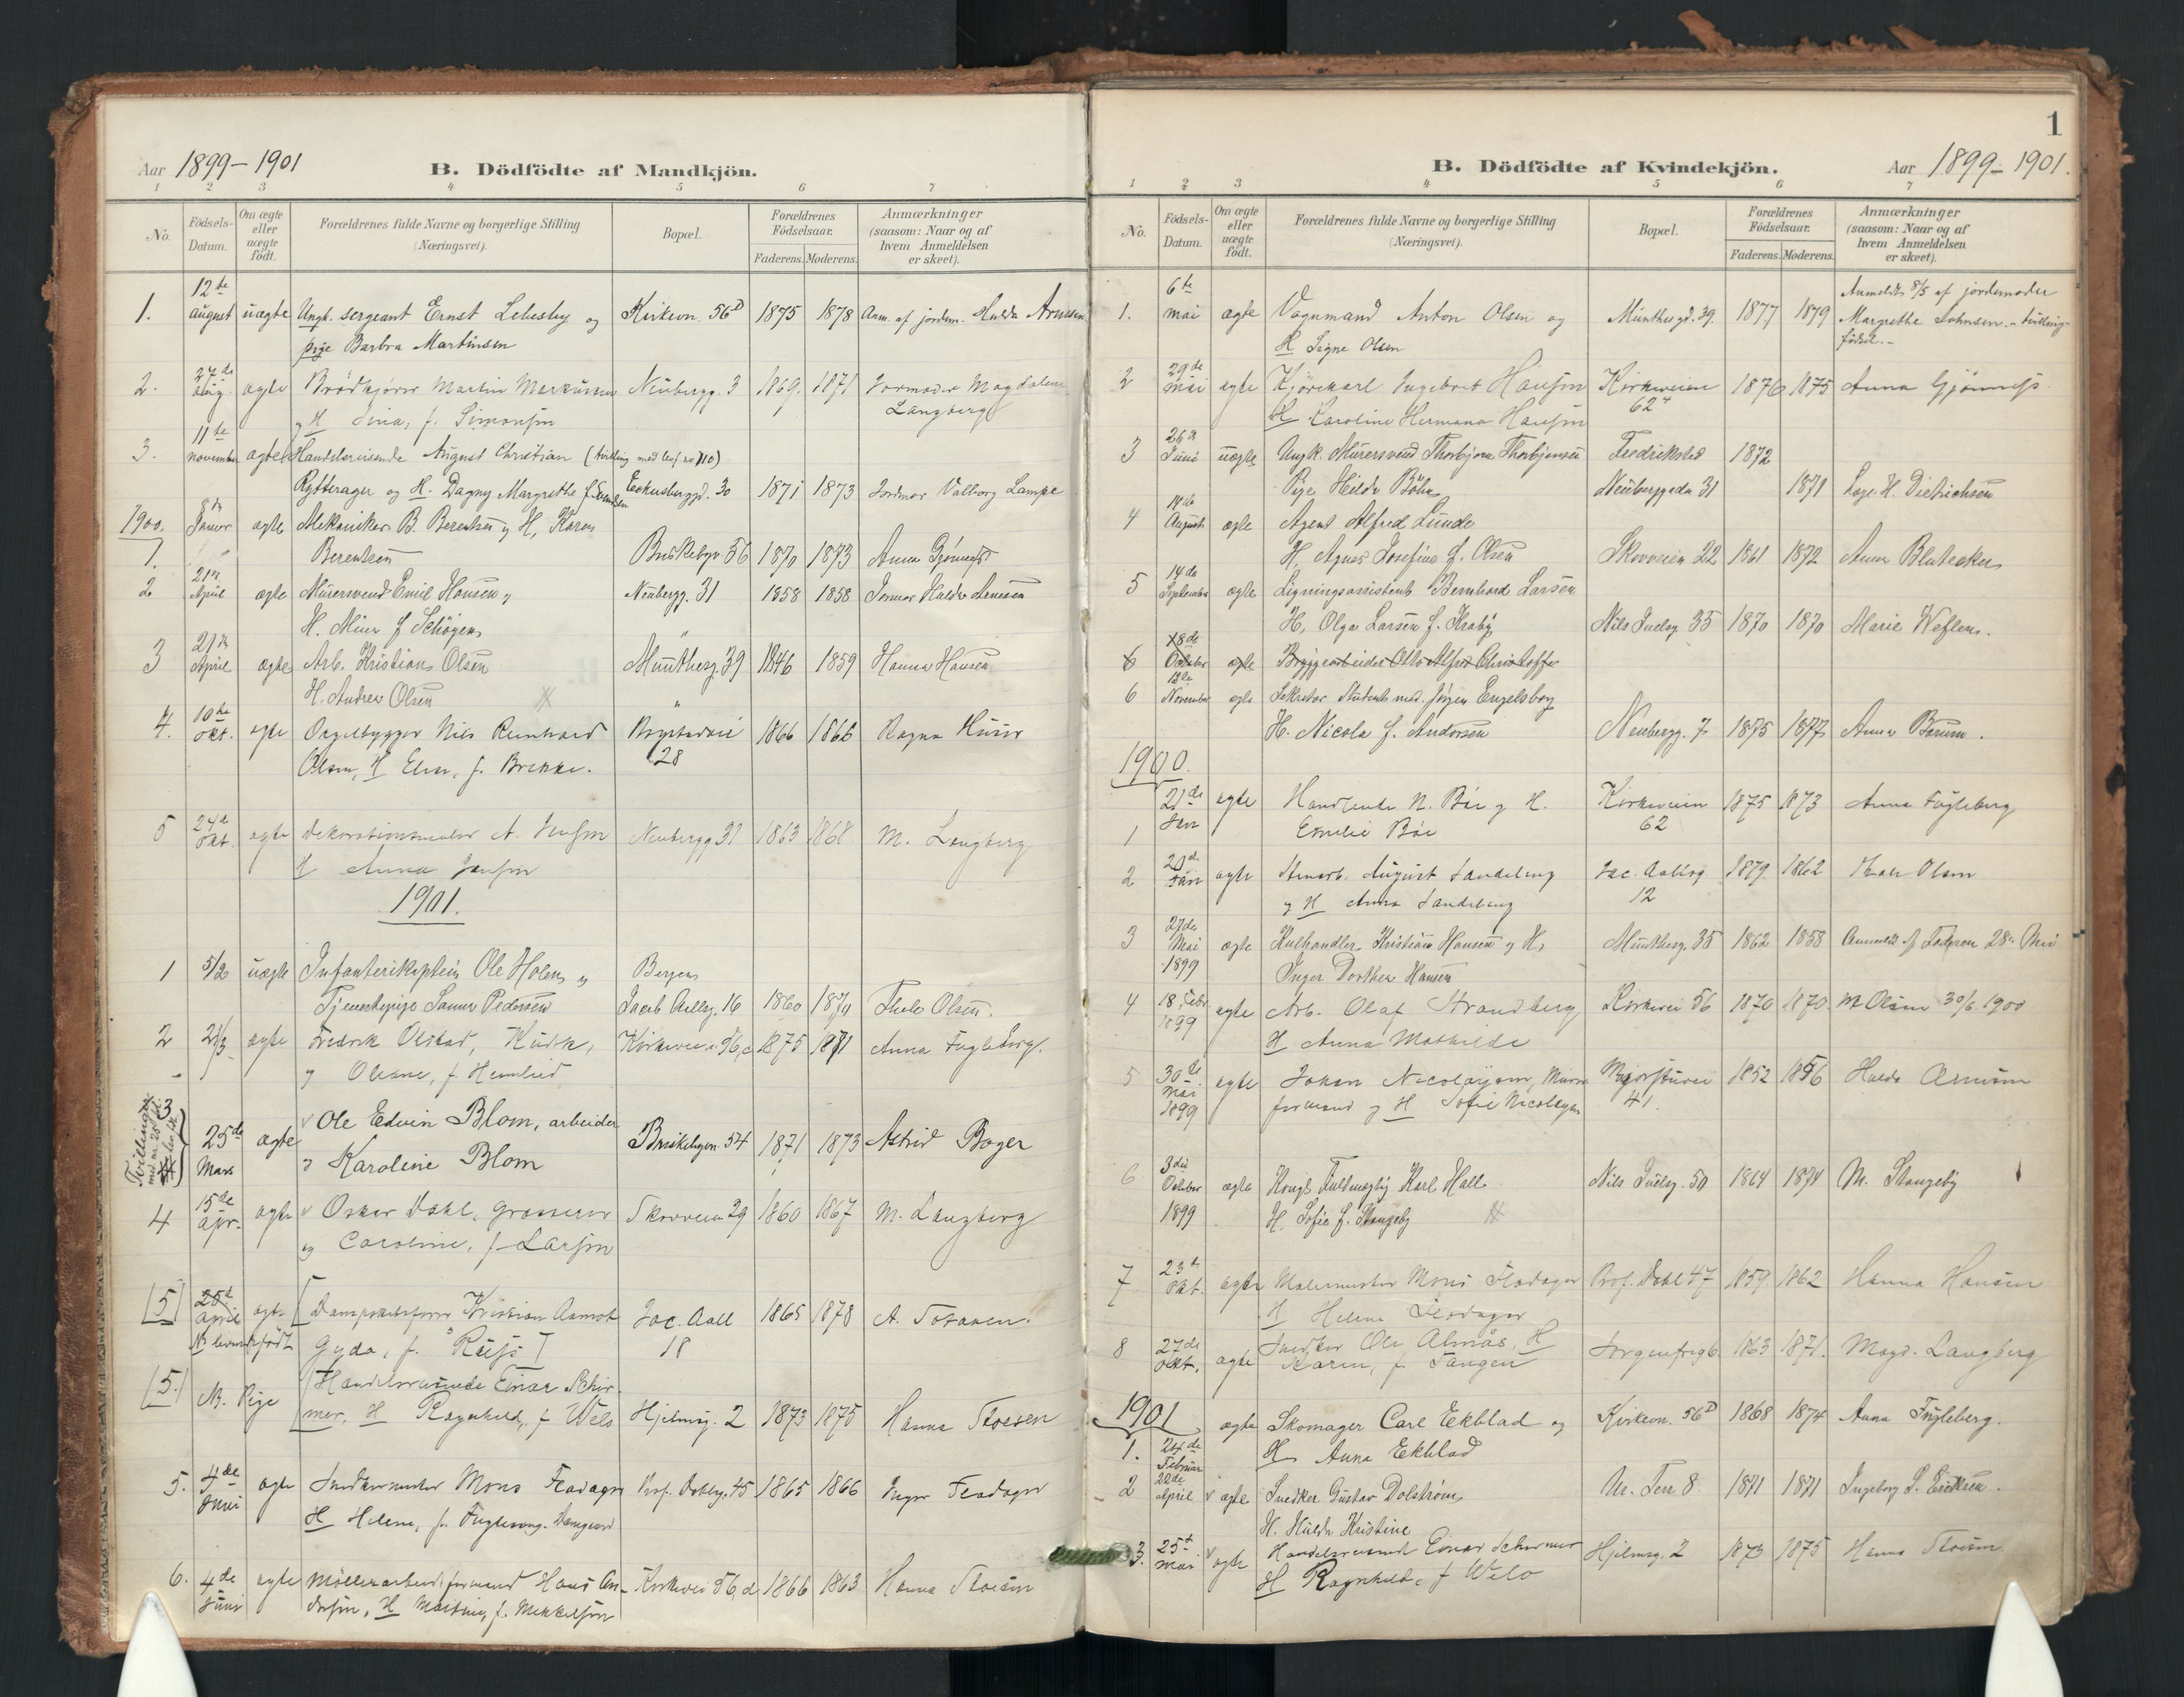 Aar 1899-1901
B. Dödfödte af Mandkjön.
1 2 3 4 5 6 7
No.
Födsels-Datum.
Om ægte eller uægte födt.
Forældrenes fulde Navne og borgerlige Stilling (Næringsvei).
Bopæl.
Forældrenes Födselsaar.
Faderens. Moderens.
Anmærkninger (saasom: Naar og af hvem Anmeldelsen er skeet).
12te
1. august uægte Ungk. sergeant Ernst Lebesby og Kirkevn. 56D 1875 1878 Anm. af jordm. Hulda Arnesen
pige Barbra Martinsen
2. 27de aug. ægte Brødkjører Martin Markussen Neubergg. 3 1869 1871 Jormoder Magdalene
og H Lina, f. Simonsen Langberg
11te
3. november ægte Handelsreisende August Christian (tvilling med lev. no 710)
Rytterager og H. Dagny Margrethe f. Eckersbergd. 30 1871 1873 Jordmor Valborg Lampe
1900. 8de Januar ægte Mekaniker B. Berentsen og H, Karen
1. Berentsen Briskebyv. 56 1870 1873 Anna Gjønnes
2 21de April ægte Murersvend Emil Hansen og Neubergg. 31 1858 1858 Jormor Hulda Arnesen
H. Mina f
3 21de April ægte Arb. Kristian Olsen Munthesg. 39 1846 1859 Hanna Hansen
H. Andrea Olsen
4. 10de okt. egte Orgelbygger Nils Reinhard 1866 1866 Ragna Huser
Olsen, H Elen, f. Brekke. 28
5 24de okt. ægte Dekorationsmaler A. Jensen Neubergg 31 1863 1868 M. Langberg
H Anna Jensen
1901.
1 5/2 uægte Infanterikaptein Ole Holen og Bergen
Tjenestepige Sanna Pedersen Jacob Aallsg. 16 1860 1870 Thale Olsen.
2 21/3 ægte Fredrik Olstad, Kusk, Kirkevei 56,c 1875 1871 Anna Fugleberg.
og Oleane, f. Hemlied
Tvilling
3 25de Mars ægte Ole Edvin Blom, arbeider Briskebyvn. 54 1871 1873 Astrid Boger
og Karoline Blom
4 15de apr. ægte Oskar Dahl, grosserer Skovveien 29 1860 1867 M. Langberg
og Caroline, f. Larsen
[5] 25de April ægte [Dampskibsfører Kristian Aamot Jac. Aall 1865 1878 A. Tosaven.
NB levendefødt Gyda, f. Reiss] 18
[5.] NB. Pige [Handelsreisende Einar Schir-
mer, H Ragnhild, f Welo Hjelmsg. 2 1873 1875 Hanna Stoesen
5. 4de Juni ægte Snedkermester Mons Fladager Prof. Dahlsg. 45 1865 1866 Inger Fladager
H Helene, f. Fuglesang-Damgaard
6. 4de Juni egte Møllerarbeidsformand Hans An- Kirkevei 56,d 1866 1863 Hanna Stoesen
dersen, H Martine, f. Mikkelsen
1
B. Dödfödte af Kvindekjön.
Aar 1899-1901.
1 2 3 4 5 6 7
No.
Födsels-Datum.
Om ægte eller uægte födt.
Forældrenes fulde Navne og borgerlige Stilling (Næringsvei).
Bopæl.
Forældrenes Födselsaar.
Faderens. Moderens.
Anmærkninger (saasom: Naar og af hvem Anmeldelsen er skeet).
6te Anmeldt 8/5 af jordemoder
1. mai ægte Vognmand Anton Olsen og Munthesgd. 39. 1877 1879 Margrethe Johnsen. - tvilling-
H Signe Olsen fødsel.-
2 29de mai egte Kjørekarl Ingebret Hansen Kirkeveien 1876 1875 Anna Gjønnes
H Karoline Hermana Hansen 62
3 26de Juni uægte Ungk. Murersvend Thorbjørn Thorbjønsen Fredrikstad 1872
Pige Hilda Bøhn Neuberggaden 31 1871 Læge H. Dietrichsen
4 August ægte Agent Alfred Lunde
H, Agnes Josefine f. Olsen Skovveien 22 1861 1872 Anna
5 14de September ægte Ligningsassistent Bernhard Larsen
H, Olga Larsen f. Kraby Nils Juelsg. 35 1870 1870 Marie Weflen.
6 18de Oktober ægte Bryggearbeider Otto Alfred Christoffer
6 November ægte Sekretær Student med. Jørgen Engelsberg
H. Nicola f. Andersen Neubergg. 7 1875 1877 Anna Bærum.
1900.
1 21de Jan ægte Handlende N. Bøe og H. Kirkeveien 1875 1873 Anna Fugleberg
Emelie Bøe 62
2 20de Jan ægte August Sandeberg Jac. Aallsg 1879 1862 Thale Olsen
og H Anna Sandeberg 12
3 27de Mai 1899 ægte Kulhandler Kristian Hansen og H, Munthesg. 35 1862 1858 Anmeldt af Faderen 28de Mai
Inger Dorthea Hansen
4 18. Febr 1899 egte Arb. Olaf Strandberg Kirkevei 56 1870 1870. M Olsen 30/6 1900
H Anna Mathilde
5 30de Mai 1899 egte Johan Nicolaysen, Murer- 1852 1856 Hulda Arnesen
formand og H Sofie Nicolaysen 41.
6 3die Oktober 1899 ægte Kongl. Fuldmægtig Karl Hall Nils Juelsg. 50 1864 1874 M. Stangeby
H. Sofie f. Stangeby
7 23de Okt. ægte Malermester Mons Fladager Prof. Dahl 47 1859 1862 Hanna Hansen
H Helene Fladager
8 27de okt. ægte Snedker Ole Almås, H Sorgenfrig 6 1863 1871. Magd. Langberg
Karen, f. Tangen
1901 ægte Skomager Carl Ekblad og Kirkevn. 56D 1868 1874 Anna Fugleberg.
1. 24de Februar H Anna Ekblad
2 22de April ægte Snedker Gustav Dolstrøm, Ur. Terr 8. 1871 1871 Ingeborg S. Eriksen.
H. Hulda Kristine
3. 25de mai ægte Handelsreisend Einar Schirmer Hjelmsg. 2 1873 1875 Hanna Stoesen
H Ragnhild, f Welo